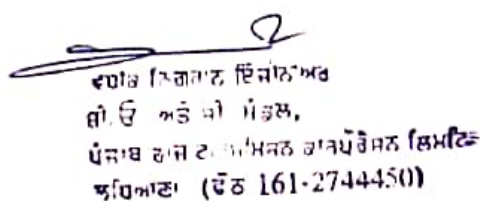 ਵਧੀਕ ਨਿਗਰਾਨ ਇੰਜੀਨੀਅਰ
ਅਤੇ ਮੰਡਲ,
ਪੰਜਾਬ ਰਾਜ ਕਾਰਪੋਰੇਸ਼ਨ ਲਿਮਟਿਡ
ਲੁਧਿਆਣਾ (ਫੋਨ 161-2744450)